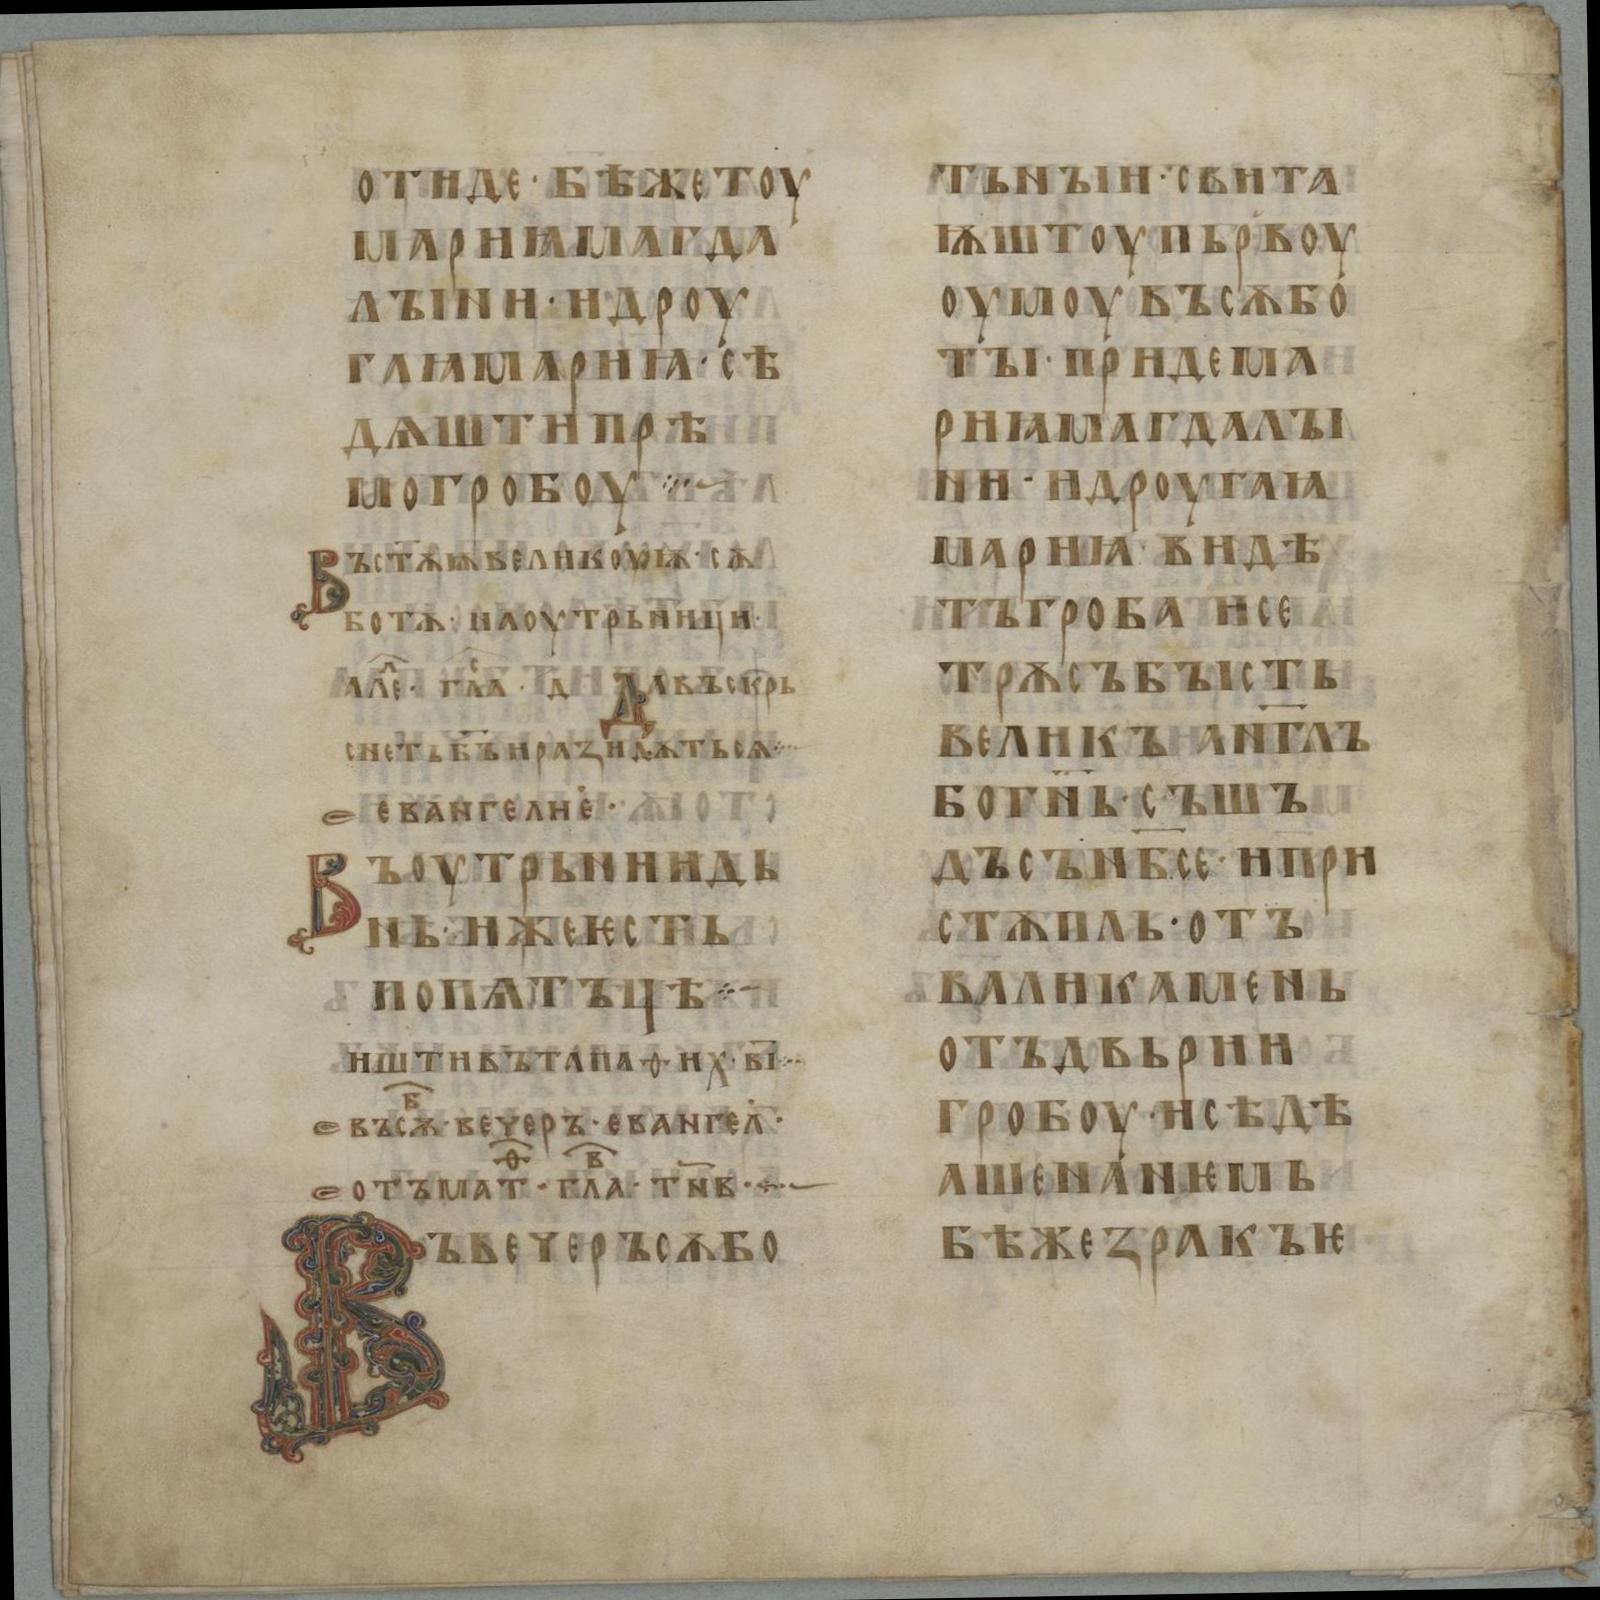 отиде· бѣже тоу
мариꙗ магда
лꙑни· и дроу
гаꙗ мариꙗ· сѣ
дѧшти прѣ
мо гробоу ⁘~
Въ ст҃ѫѭ великоуѭ· сѫ
ботѫ· на оутрьници·
але· гла· д҃ Да въскрь
снеть б҃ъ и разидѫтьсѧ⁘
еванг̓елие·
Въ оутрьнии дь
нь· иже ѥсть
по пѧтъцѣ⁘~
ишти въ тапаѳих· в҃і⁘
въ сѫб· вечеръ· евангел̓·
отъ маѳ· глав· т҃нв·⁘~
Въ вечеръ сѫбо
тьнꙑи· свита
ѭштоу пьрвоу
оумоу въ сѫбо
тꙑ· приде ма
риꙗ магдалꙑ
ни· и дроугаꙗ
мариꙗ видѣ
тъ гроба и се
трѫсъ бꙑсть
великъ анг҃лъ
бо г҃нь· съшъ
дъ съ нб҃се· и при
стѫпль· отъ
вали камень
отъ двьрии
гробоу· и сѣдѣ
аше на нѥмь
бѣ же зракъ ѥ